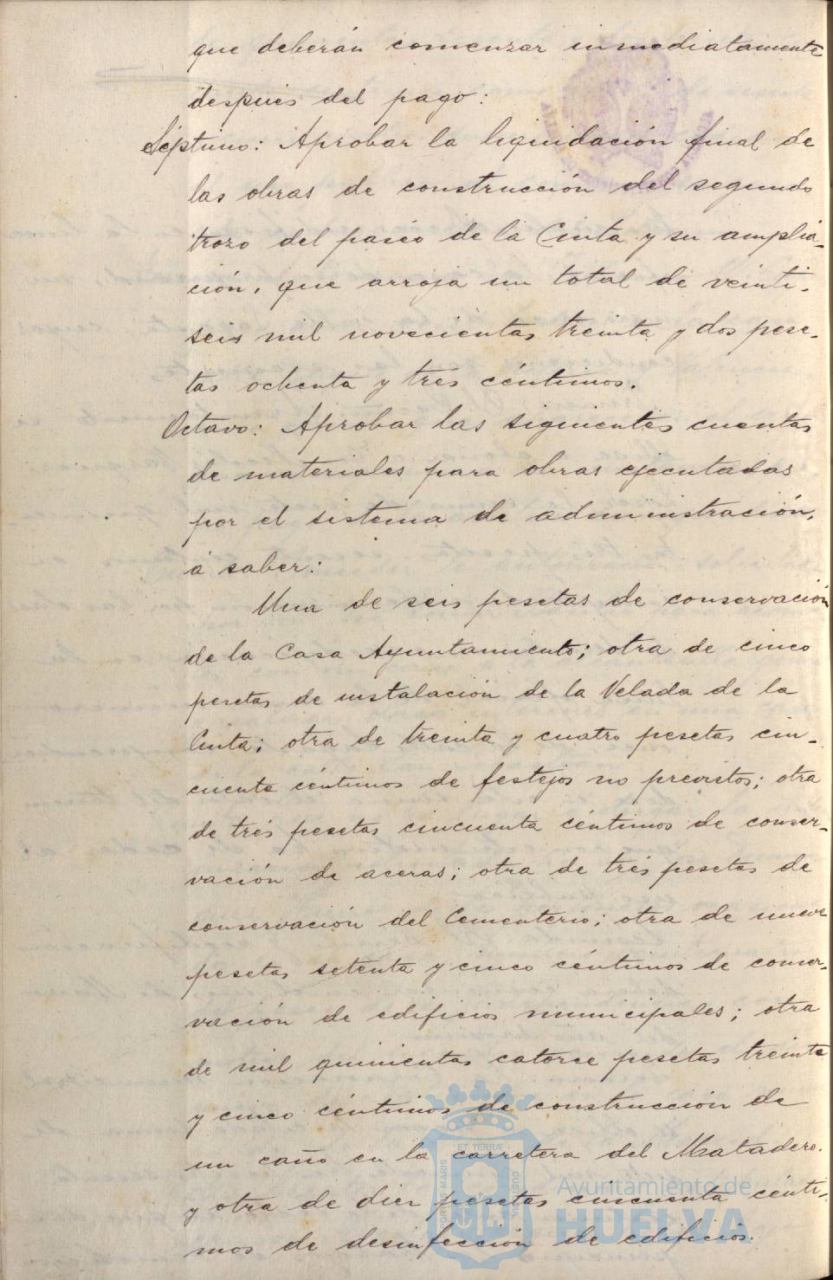 que deberán comenzar inmediatamente
despues del pago:
Séptimo: Aprobar la liquidación final de
las obras de construcción del segundo
trozo del paseo de la Cinta y su amplia-
ción, que arroja un total de veinti-
seis mil novecientas treinta y dos pese-
tas ochenta y tres céntimos.
Octavo: Aprobar las siguientes cuentas
de materiales para obras ejecutadas
por el sistema de administración,
á saber:
Una de seis pesetas de conservación
de la Casa Ayuntamiento; otra de cinco
pesetas de instalación de la Velada de la
Cinta; otra de treinta y cuatro pesetas cin-
cuenta céntimos de festejos no previstos; otra
de trés pesetas cincuenta céntimos de conser-
vación de aceras; otra de trés pesetas de
conservación del Cementerio; otra de nueve
pesetas setenta y cinco céntimos de conser-
vación de edificios municipales; otra
de mil quinientas catorce pesetas treinta
y cinco céntimos de construcción de
un caño en la carretera del Matadero.
y otra de diez pesetas cincuenta cénti-
mos de desinfección de edificios.
Ayuntamiento de
HUELVA